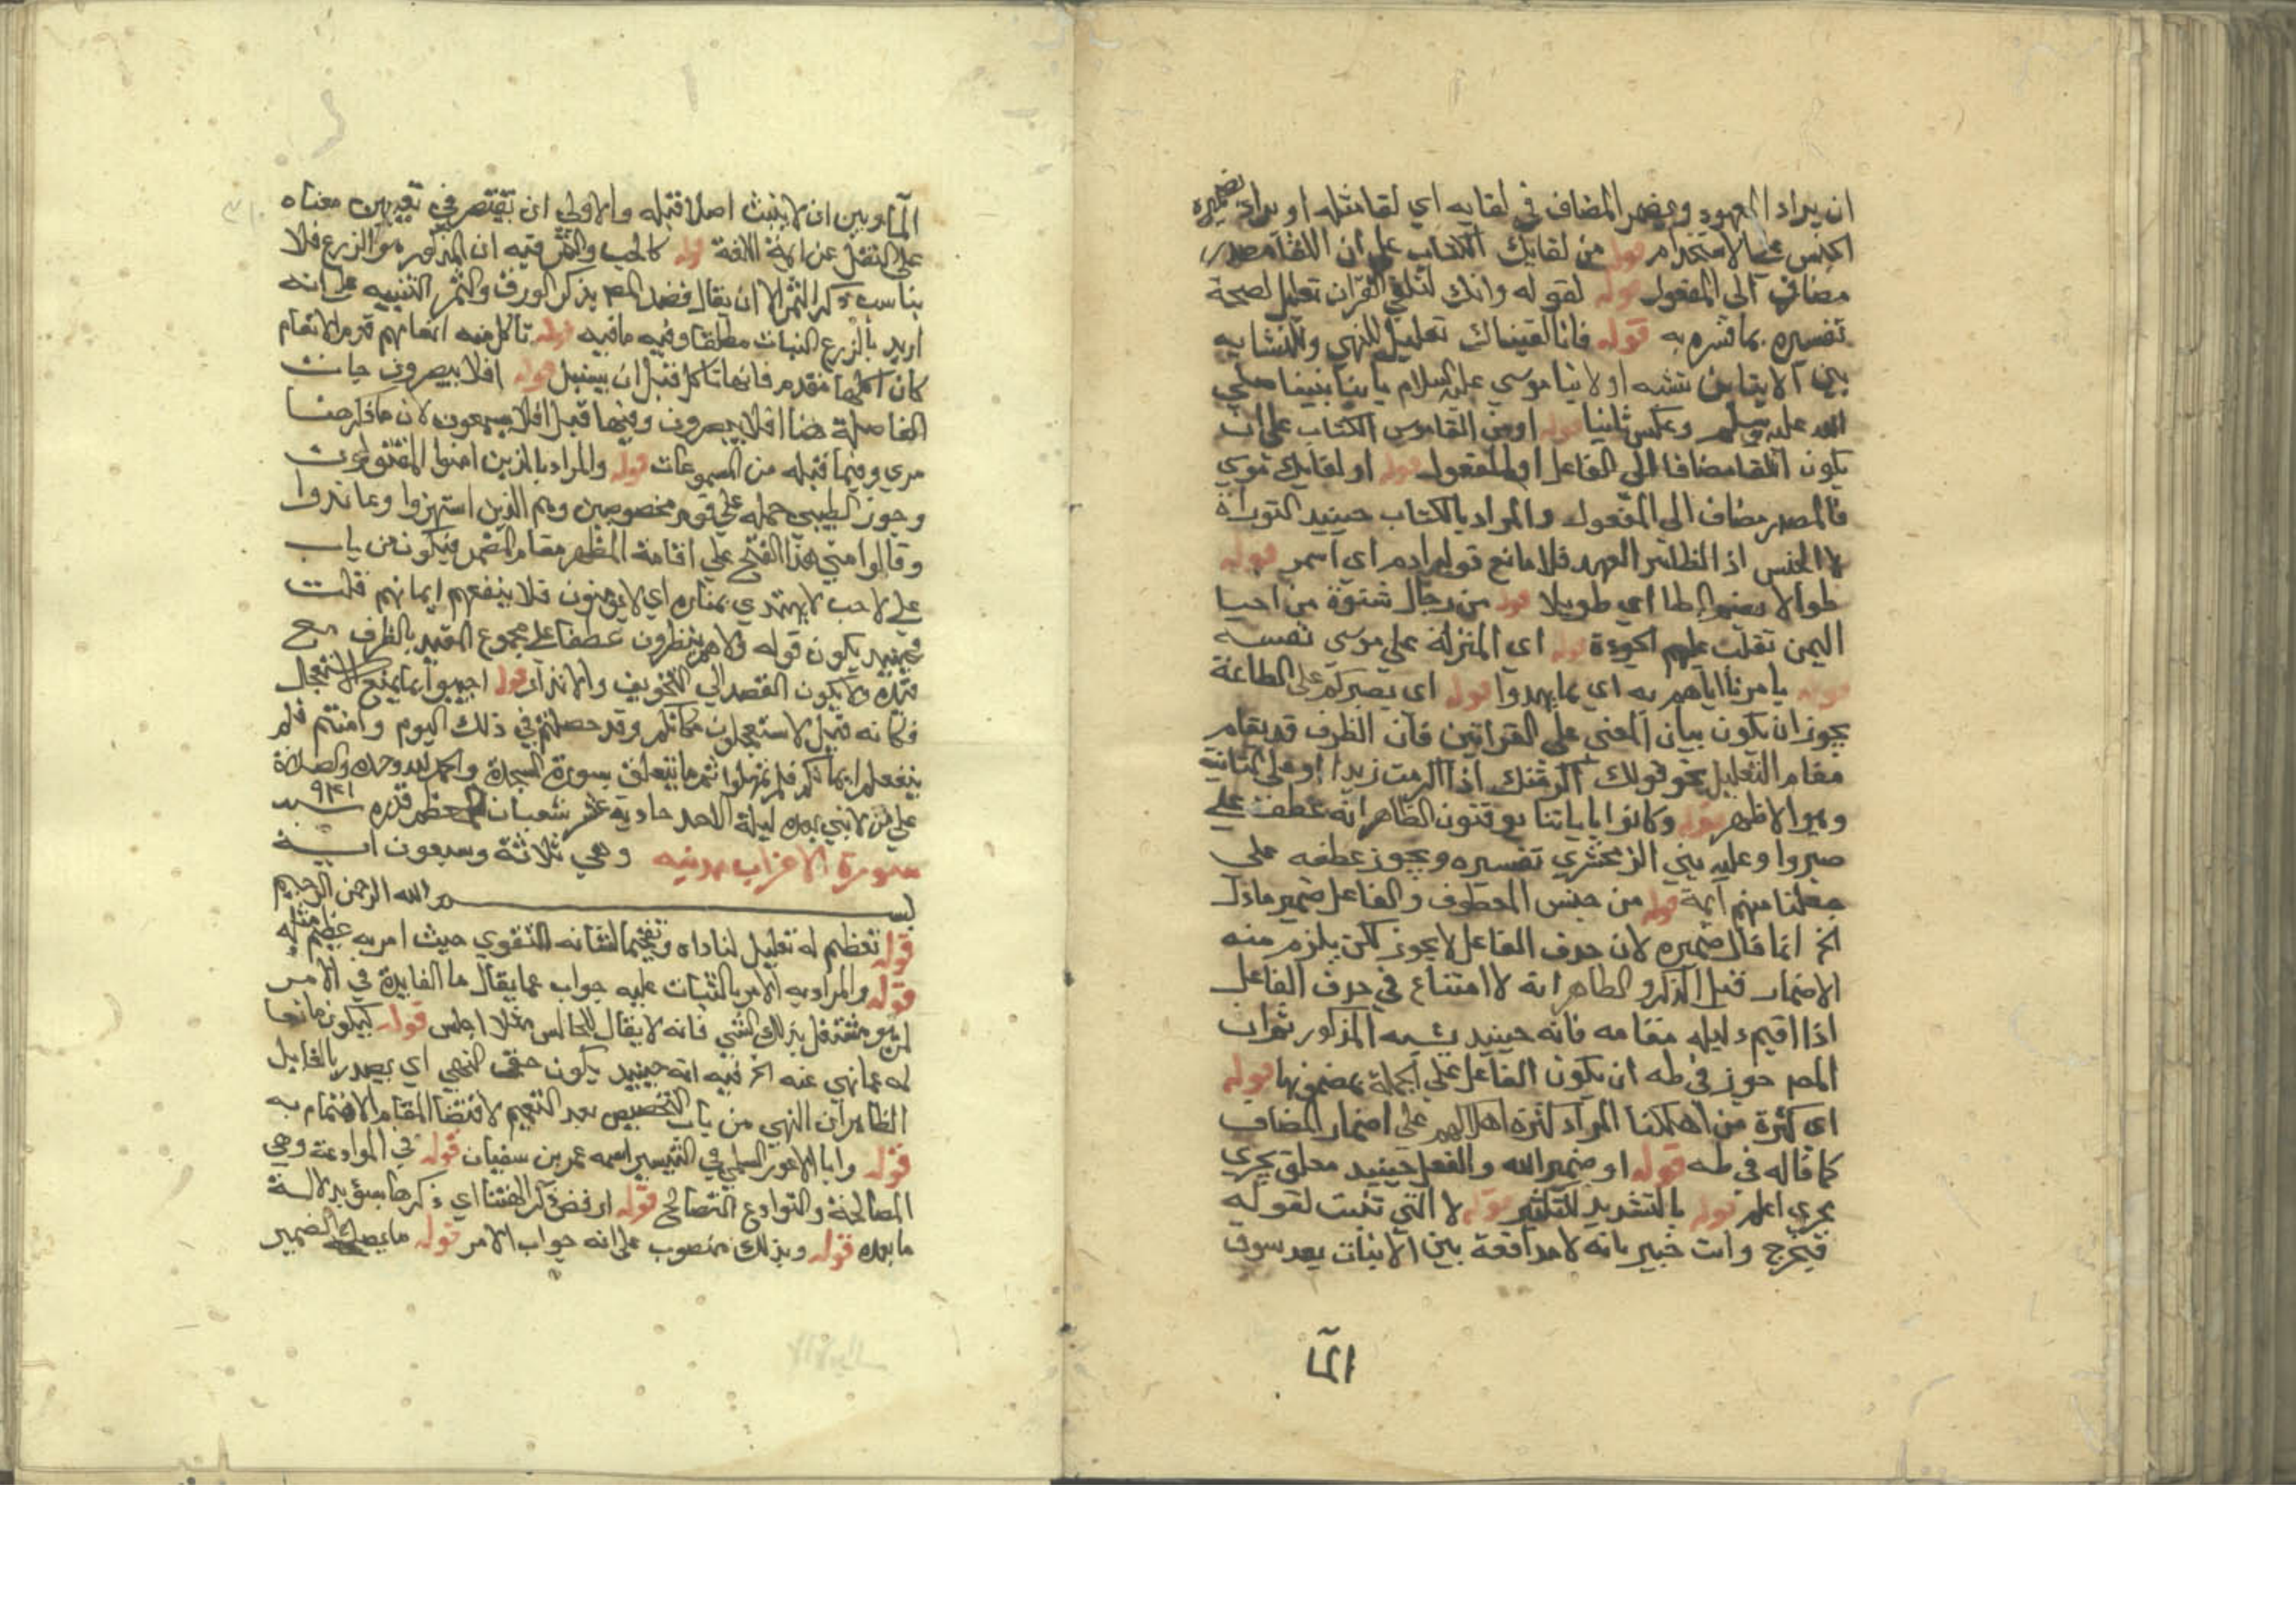 ان يراد المعهود ويضمر المضاف في لقايه اي لقا مثله او يراد بضميره
الجنس على الاستخدام قوله من لقايك الكتاب على ان اللقا مصدر
مضاف الى المفعول قوله لقوله وانك لتلقى القران تعليل لصحة
تفسيره بما فسره به قوله فانا اتيناك تعليل للنهي والتشابه
بين الايتاين شبه اولا ايتا موسي عليه السلام بايتا نبينا صلي
الله عليه وسلم وعكس ثانيا قوله او من لقا موسى الكتاب على ان
يكون اللقا مضافا الى الفاعل او المفعول قوله او لقايك موسي
فالمصدر مضاف الى المفعول والمراد بالكتاب حينيد التوراة
لا الجنس اذ الظاهر العهد فلا مانع قوله ادم اى اسمر قوله
طوالا بضم الطا اي طويلا قوله من رجال شنوة من احيا
اليمن تقلب عليهم الجعودة قوله اى المنزلة على موسى نفسه
قوله بامرنا اياهم به اي بما يهدوا قوله اى بصبركم على الطاعة
يجوز ان يكون بيان المعني على القراتين فان الظرف قد يقام
مقام التعليل نحو قولك اكرمتك اذ اكرمت زيدا او على الثانية
وهو الاظهر قوله وكانوا باياتنا يوقنون الظاهر انه عطف على
صبروا وعليه بني الزمخشري تفسيره ويجوز عطفه على
جعلنا منهم ايمة قوله من جنس المعطوف والفاعل ضمير مادل
الخ انما قال ضميره لان حذف الفاعل لا يجوز لكن يلزم منه
الاضمار قبل الذكر والظاهر انه لا امتناع في حذف الفاعل
اذا اقيم دليله مقامه فانه حينيد يشبه المذكور ثم ان
المص جوز في طه ان يكون الفاعل على الجملة بمضمونها قوله
اى كثرة من اهلكنا المراد كثرة اهلاكهم على اضمار المضاف
كما قاله في طه قوله او ضمير الله والفعل حينيد معلق يجري
مجري اعلم قوله بالتشديد للتكثير قوله لا التي تنبت لقوله
فنخرج وانت خبير بانه لا مدافعة بين الانبات بعد سوق
الما
الما وبين ان لا ينبت اصلا قبله والاولى ان يقتصر في تعيين معناه
على النقل عن ايمة اللغة قوله كالحب والثمر فيه ان المذكور هو الزرع فلا
يناسب ذكر الثمر الا ان يقال قصد المص بذكر الورق والثمر التنبيه على انه
اريد بالزرع النبات مطلقا وفيه ما فيه قوله تاكل منه انعامهم قدم الانعام
كان اكلها مقدم فانها تاكل قبل ان يسنبل قوله افلا يبصرون جات
الفاصلة هنا افلا يبصرون وفيما قبل افلا يسمعون لان ما ذكر هنا
مري وفيما قبله من المسموعات قوله والمراد بالذين امنوا المقتولون
وجوز الطيبي حمله على قوم مخصوصين وهم الذين استهزوا وعاندوا
وقالوا متى هذا الفتح على اقامة المظهر مقام المضمر فيكون من باب
على لاحب لا يهتدي بمناره اي لا يومنون فلا ينفعهم ايمانهم قلت
فحينيد يكون قوله ولا هم ينظرون عطفا على مجموع المقيد بالظرف مع
قيده ولا يكون القصد الي التخويف والانذار قوله اجيبوا بما يمنع الاستعجال
فكانه قيل لا تستعجلون فكانكم وقد حصلتم في ذلك اليوم وامنتم فلم
ينفعكم ايمانكم فلم تمهلوا تم ما يتعلق بسورة السجدة والحمد لله وحده والصلاة
على من لا نبي بعده ليلة الاحد حادية عشر شعبان المعظم قدره سنة ٩٣١
سورة الاحزاب مدنيه وهي ثلاثة وسبعون اية
بسم الله الرحمن الرحيم
قوله تعظيم له تعليل لناداه وتفخيما لشانه التقوي حيث امر به عظيم مثله
قوله والمراد به الامر بالثبات عليه جواب عما يقال ما الفايدة في الامر
لمن هو مشتغل بذلك الشي فانه لا يقال للجالس مثلا اجلس قوله ليكون مانعا
له عما نهي عنه الخ فيه انه حينيد يكون حق النهي اي يصدر بالفا بل
الظاهر ان النهي من باب التخصيص بعد التعميم لاقتضا المقام الاهتمام به
قوله وابا الاعور السلمي في التيسير اسمه عمر بن سفيان قوله في الموادعة وهي
المصالحة والتوادع التصالح قوله ارفض ذكر الهتنا اي ذكرها بسوء بدلالة
ما بعده قوله وبذلك منصوب على انه جواب الامر قوله ما يصلح الضمير